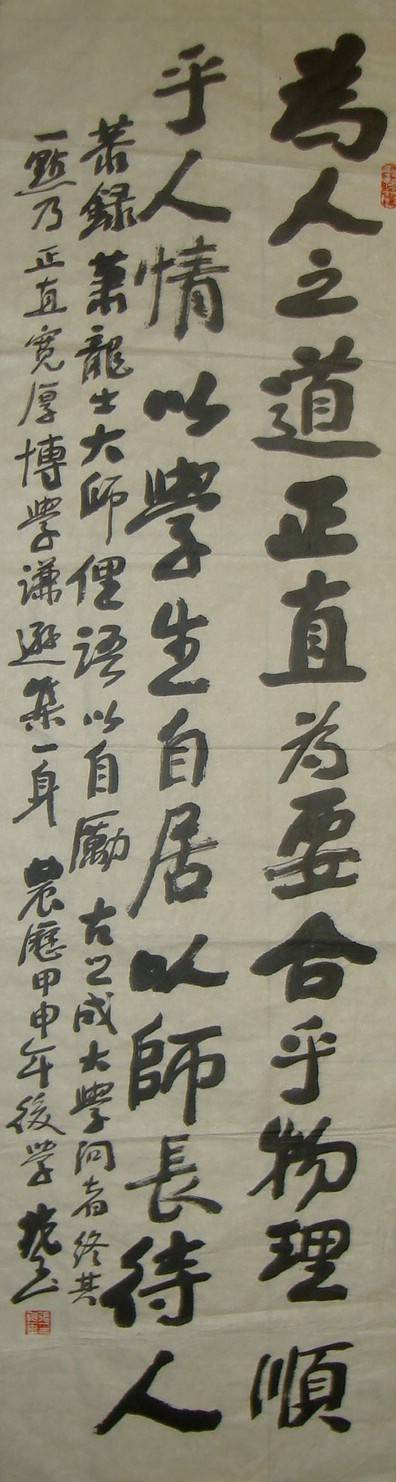 為人之道正直為要合乎物理順
乎人情以學生自居以師長待人
恭録蕭龍士大師俚語以自勵古之成大學問者終其
一點乃正直寬厚博學謙遜集一身農歷甲申年後學